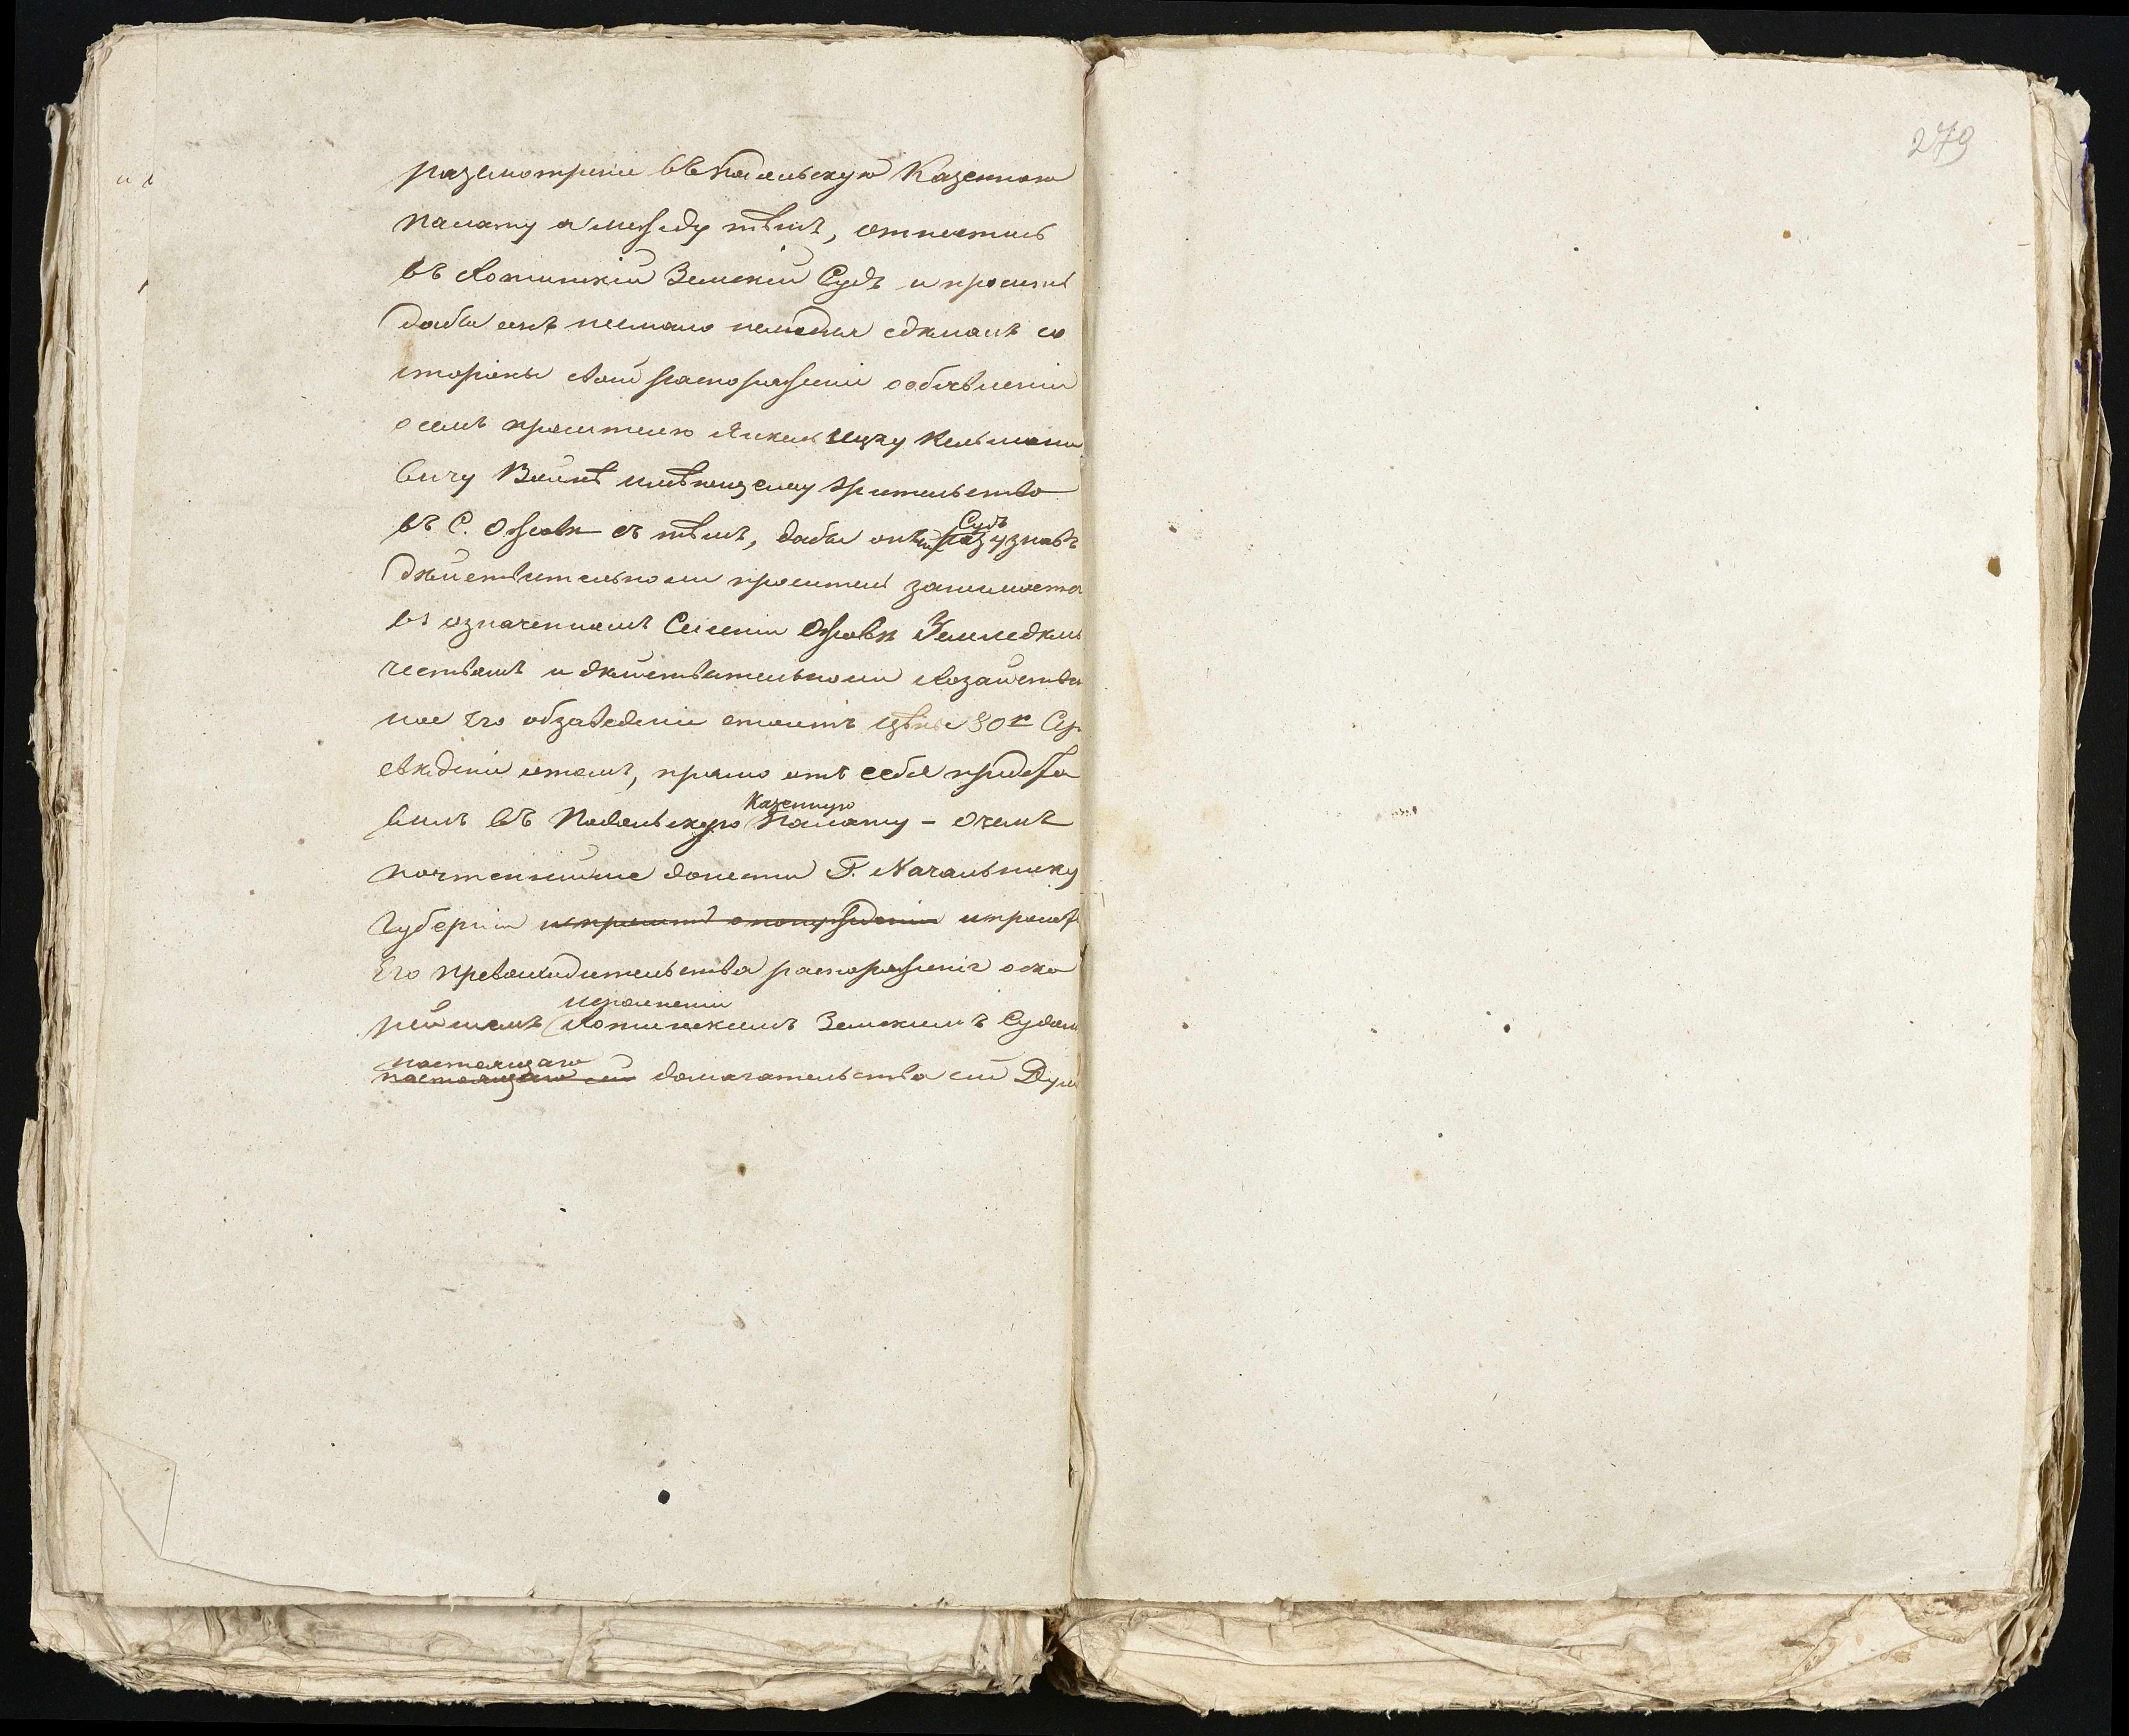 279
разсмотрение въ Подольскую Казенною
палату а между тѣмъ, отнестись
въ Хотинскій Земскій Судъ и просить
дабы онъ немало немедля сдѣлалъ со
стороны своей распоряженіе объявленіи
о семъ просителю Янкель Ицку Кельмано
вичу Вайнъ имѣющему жительство
въ С. Ожевѣ съ тѣмъ, дабы онъ Судъ разузнавъ
дѣйствительно ли проситель занимаетъ
въ означенномъ Селеніи Ожевѣ Земледѣль
чествомъ и дѣйствительно ли хозайствен
ное его обзаведеніе стоитъ цѣны 80 Ср
свѣденіе о томъ, прямо отъ себя предста
вилъ въ Подольскую Казенную Палату – о чемъ
почтеннѣйше донести Г. Начальнику
Губерніи и просить о понужденіи и просить
Его Превосходительства распоряженіе о ско
рейшемъ исполненіи Хотинскимъ Земскимъ Судом
настоящаго настоящаго сей домагательства сей Думы